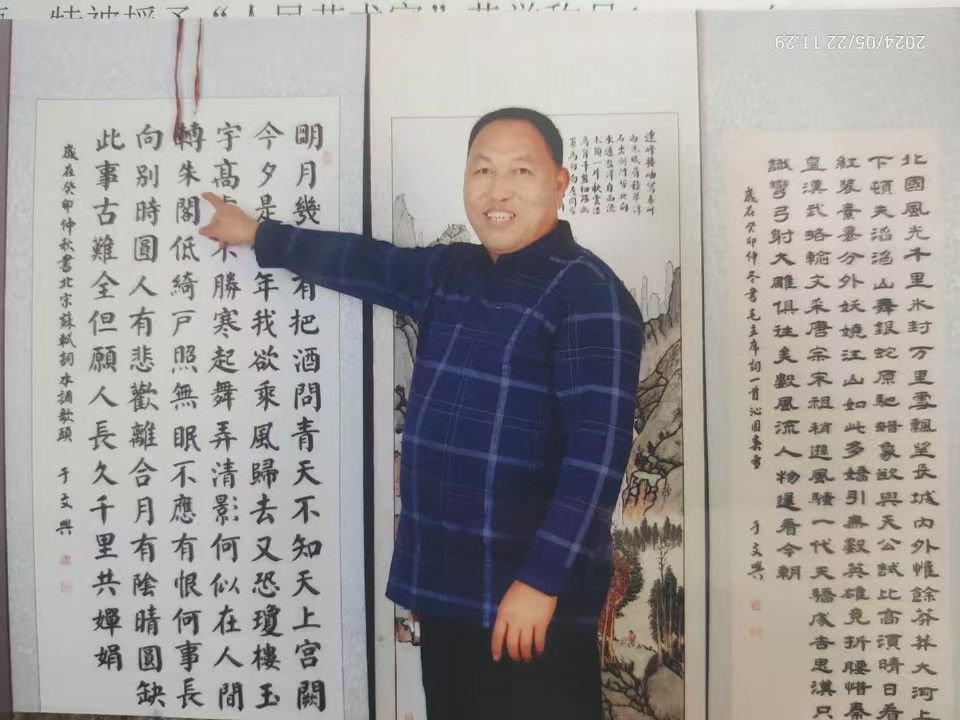 特被授予“人民艺术家”荣誉称号
2024/05/22 11:29
明月幾有把酒問青天不知天上宮闕
今夕是年我欲乘風歸去又恐瓊樓玉
宇高處不勝寒起舞弄清影何似在人間
轉朱閣低綺戶照無眠不應有恨何事長
向別時圓人有悲歡離合月有陰晴圓缺
此事古難全但願人長久千里共嬋娟
歲在癸卯仲秋書北宋蘇軾詞水調歌頭 于文興
連峰接岫
北國風光千里氷封万里雪飄望長城內外惟餘莽莽大河上
下頓失滔滔山舞銀蛇原馳蜡象欲與天公試比高須晴日看
紅裝素裹分外妖嬈江山如此多嬌引無數英雄竞折腰惜秦
皇漢武略輸文采唐宗宋祖稍遜風騷一代天驕成吉思漢只
識彎弓射大雕俱往矣數風流人物還看今朝
歲在癸卯仲冬書毛主席詞一首沁园春雪 于文興